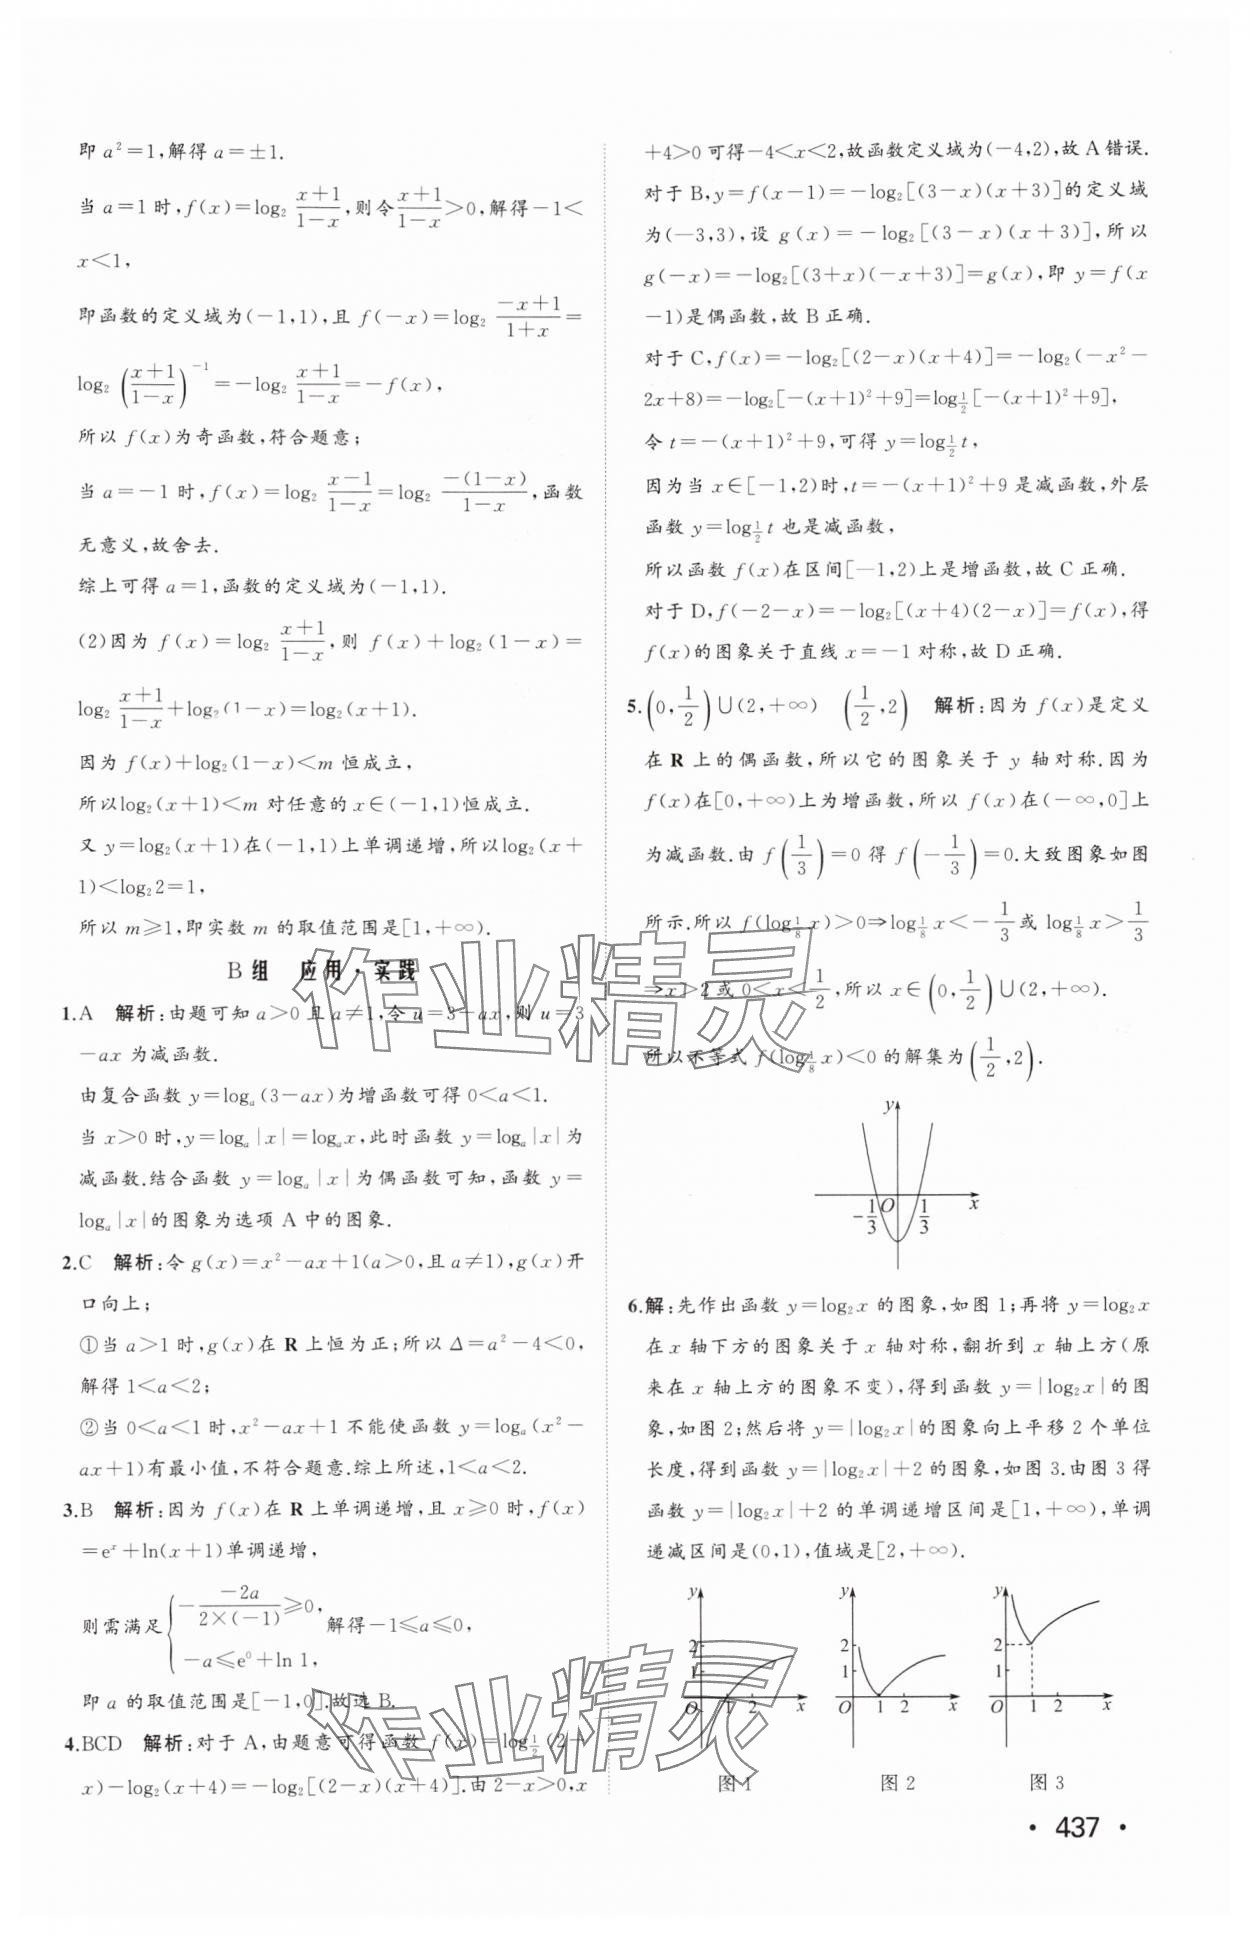 即 a²=1,解得 a=±1.
当 a=1 时,f(x)=log₂ (x+1)/(1-x),则令(x+1)/(1-x)>0,解得-1<
x<1,
即函数的定义域为(-1,1),且 f(-x)=log₂ (-x+1)/(1+x)=
log₂ ((x+1)/(1-x))⁻¹=-log₂ (x+1)/(1-x)=-f(x),
所以 f(x)为奇函数,符合题意;
当 a=-1 时,f(x)=log₂ (x-1)/(1-x)=log₂ (-(1-x))/(1-x),函数
无意义,故舍去.
综上可得 a=1,函数的定义域为(-1,1).
(2)因为 f(x)=log₂ (x+1)/(1-x),则 f(x)+log₂(1-x)=
log₂ (x+1)/(1-x)+log₂(1-x)=log₂(x+1).
因为 f(x)+log₂(1-x)<m 恒成立,
所以log₂(x+1)<m 对任意的 x∈(-1,1)恒成立.
又 y=log₂(x+1)在(-1,1)上单调递增,所以log₂(x+
1)<log₂2=1,
所以 m≥1,即实数 m 的取值范围是[1,+∞).
B组 应用·实践
1.A 解析:由题可知 a>0 且 a≠1,令 u=3-ax,则 u=3
-ax 为减函数.
由复合函数 y=logₐ(3-ax)为增函数可得 0<a<1.
当 x>0 时,y=logₐ|x|=logₐx,此时函数 y=logₐ|x|为
减函数.结合函数 y=logₐ|x|为偶函数可知,函数 y=
logₐ|x|的图象为选项 A 中的图象.
2.C 解析:令 g(x)=x²-ax+1(a>0,且 a≠1),g(x)开
口向上;
①当 a>1 时,g(x)在 R 上恒为正;所以 Δ=a²-4<0,
解得 1<a<2;
②当 0<a<1 时,x²-ax+1 不能使函数 y=logₐ(x²-
ax+1)有最小值,不符合题意.综上所述,1<a<2.
3.B 解析:因为 f(x)在 R 上单调递增,且 x≥0 时,f(x)
=eˣ+ln(x+1)单调递增,
则需满足{-(-2a)/(2×(-1))≥0, -a≤e⁰+ln 1, 解得-1≤a≤0,
即 a 的取值范围是[-1,0].故选 B.
4.BCD 解析:对于 A,由题意可得函数 f(x)=log_{1/2}(2-
x)-log₂(x+4)=-log₂[(2-x)(x+4)].由 2-x>0,x
+4>0 可得-4<x<2,故函数定义域为(-4,2),故 A 错误.
对于 B,y=f(x-1)=-log₂[(3-x)(x+3)]的定义域
为(-3,3),设 g(x)=-log₂[(3-x)(x+3)],所以
g(-x)=-log₂[(3+x)(-x+3)]=g(x),即 y=f(x
-1)是偶函数,故 B 正确.
对于 C,f(x)=-log₂[(2-x)(x+4)]=-log₂(-x²-
2x+8)=-log₂[-(x+1)²+9]=log_{1/2}[-(x+1)²+9],
令 t=-(x+1)²+9,可得 y=log_{1/2}t,
因为当 x∈[-1,2)时,t=-(x+1)²+9 是减函数,外层
函数 y=log_{1/2}t 也是减函数,
所以函数 f(x)在区间[-1,2)上是增函数,故 C 正确.
对于 D,f(-2-x)=-log₂[(x+4)(2-x)]=f(x),得
f(x)的图象关于直线 x=-1 对称,故 D 正确.
5.(0,1/2)∪(2,+∞) (1/2,2) 解析:因为 f(x)是定义
在 R 上的偶函数,所以它的图象关于 y 轴对称.因为
f(x)在[0,+∞)上为增函数,所以 f(x)在(-∞,0]上
为减函数.由 f(1/3)=0 得 f(-1/3)=0.大致图象如图
所示.所以 f(log_{1/8}x)>0⇒log_{1/8}x<-1/3或 log_{1/8}x>1/3
⇒x>2 或 0<x<1/2,所以 x∈(0,1/2)∪(2,+∞).
所以不等式 f(log_{1/8}x)<0 的解集为(1/2,2).
y
-1/3 O 1/3 x
6.解:先作出函数 y=log₂x 的图象,如图 1;再将 y=log₂x
在 x 轴下方的图象关于 x 轴对称,翻折到 x 轴上方(原
来在 x 轴上方的图象不变),得到函数 y=|log₂x|的图
象,如图 2;然后将 y=|log₂x|的图象向上平移 2 个单位
长度,得到函数 y=|log₂x|+2 的图象,如图 3.由图 3 得
函数 y=|log₂x|+2 的单调递增区间是[1,+∞),单调
递减区间是(0,1),值域是[2,+∞).
y y y
2 2 2
1 1 1
O 1 2 x O 1 2 x O 1 2 x
图 1 图 2 图 3
· 437 ·
作业精灵
作业精灵